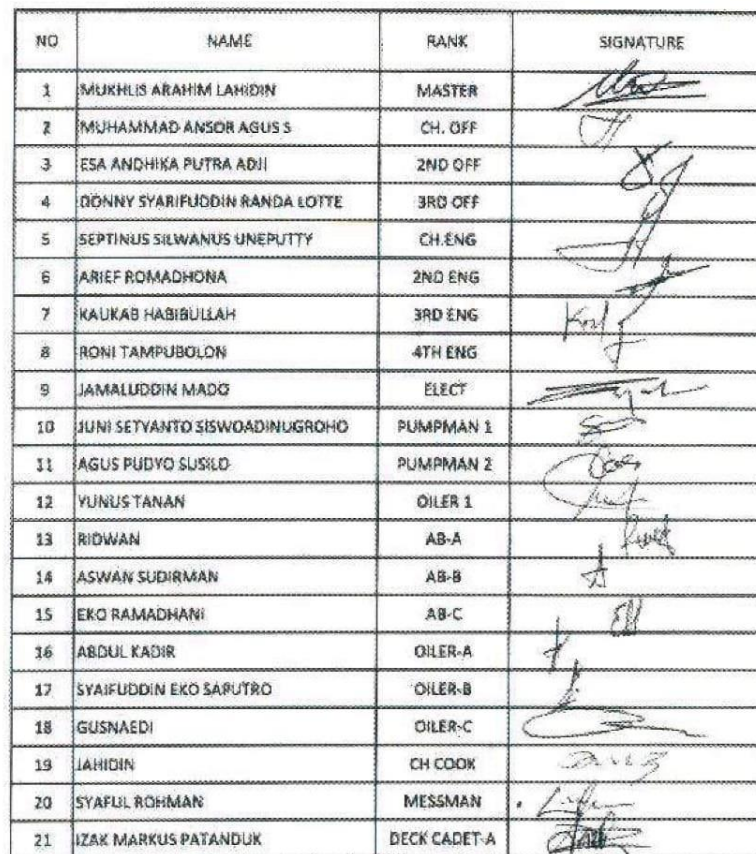 NO NAME RANK SIGNATURE
1 MUKHLIS ARAHIM LAHIDIN MASTER
2 MUHAMMAD ANSOR AGUS S CH. OFF
3 ESA ANDHIKA PUTRA ADJI 2ND OFF
4 DONNY SYARIFUDDIN RANDA LOTTE 3RD OFF
5 SEPTINUS SILWANUS UNEPUTTY CH.ENG
6 ARIEF ROMADHONA 2ND ENG
7 KAUKAB HABIBULLAH 3RD ENG
8 RONI TAMPUBOLON 4TH ENG
9 JAMALUDDIN MADO ELECT
10 JUNI SETYANTO SISWOADINUGROHO PUMPMAN 1
11 AGUS PUDYO SUSILO PUMPMAN 2
12 YUNUS TANAN OILER 1
13 RIDWAN AB-A
14 ASWAN SUDIRMAN AB-B
15 EKO RAMADHANI AB-C
16 ABDUL KADIR OILER-A
17 SYAIFUDDIN EKO SAPUTRO OILER-B
18 GUSNAEDI OILER-C
19 JAHIDIN CH COOK
20 SYAFUL ROHMAN MESSMAN
21 IZAK MARKUS PATANDUK DECK CADET-A